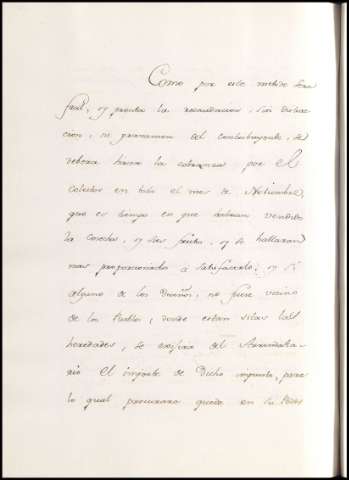 Como por este metodo sera
facil, y pronta la recaudacion, sin vexa
cion, ni gravamen del contribuyente, se
debera hacer la cobranza por el
colector en todo el mes de Noviembre,
que es tiempo en que habran vendido
la cosecha, y sus frutos, y se hallaran
mas proporcionados á satisfacerlo; y si
alguno de los Dueños, no fuere vecino
de los Pueblos, donde estan sitas las
heredades, se exijira del Arrendata-
rio el importe de Dicho impuesto, para
lo qual procurara quede en su Poder